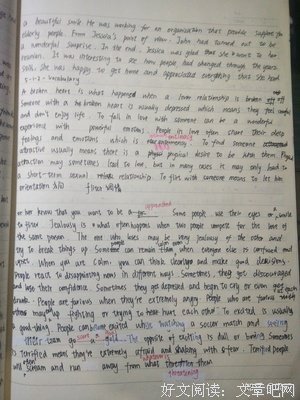 a beautiful smile. He was working for an organization that provide support for
elderly people. From Jessica's point of view, John had turned out to be
a wonderful surprise. In the end, Jessica was glad that she went to her
reunion. It was interesting to see how people had changed through the years.
Still, she was happy to get home and appreciated everything that she had
Vocabulary
A broken heart is what happened when a love relationship is broken off
Someone with a broken heart is usually depressed which means they feel
and don't enjoy life. To fall in love with someone can be a wonderful
experience with powerful emotions. People in love often share their deep
feelings and emotions which is To find someone attracted
attractive usually means there is a physical desire to be near them.
attraction may sometimes lead to love. In many cases it may only lead to
a short-term sexual relationship. To flirt with someone means to let him
flirt with
or her know that you want to be Some people use their eyes or smile
to flirt. Jealousy is what often happens when two people compete for the love of
the same person. The one who loses may be very jealousy of the other and
try to break things up. Some people can remain calm when everyone else is confused and
upset. When you are calm, you can think clearly and make good decisions.
People react to disappointing news in different ways. Sometimes, they get discouraged
and lose their confidence. Sometimes they get depressed and begin to cry or even get
drunk. People are furious when they're extremely angry. People who are furious
may end up fighting or trying to hear hurt each other. To excited is usually
a good thing. People can become excited while watching a soccer match and seeing
their team goal. The opposite of exciting is dull or boring. Someone
is terrified means they're extremely afraid and shaking with fear. Terrified people
will scream and run away from what threaten them
threatening
好文阅读：文章吧网